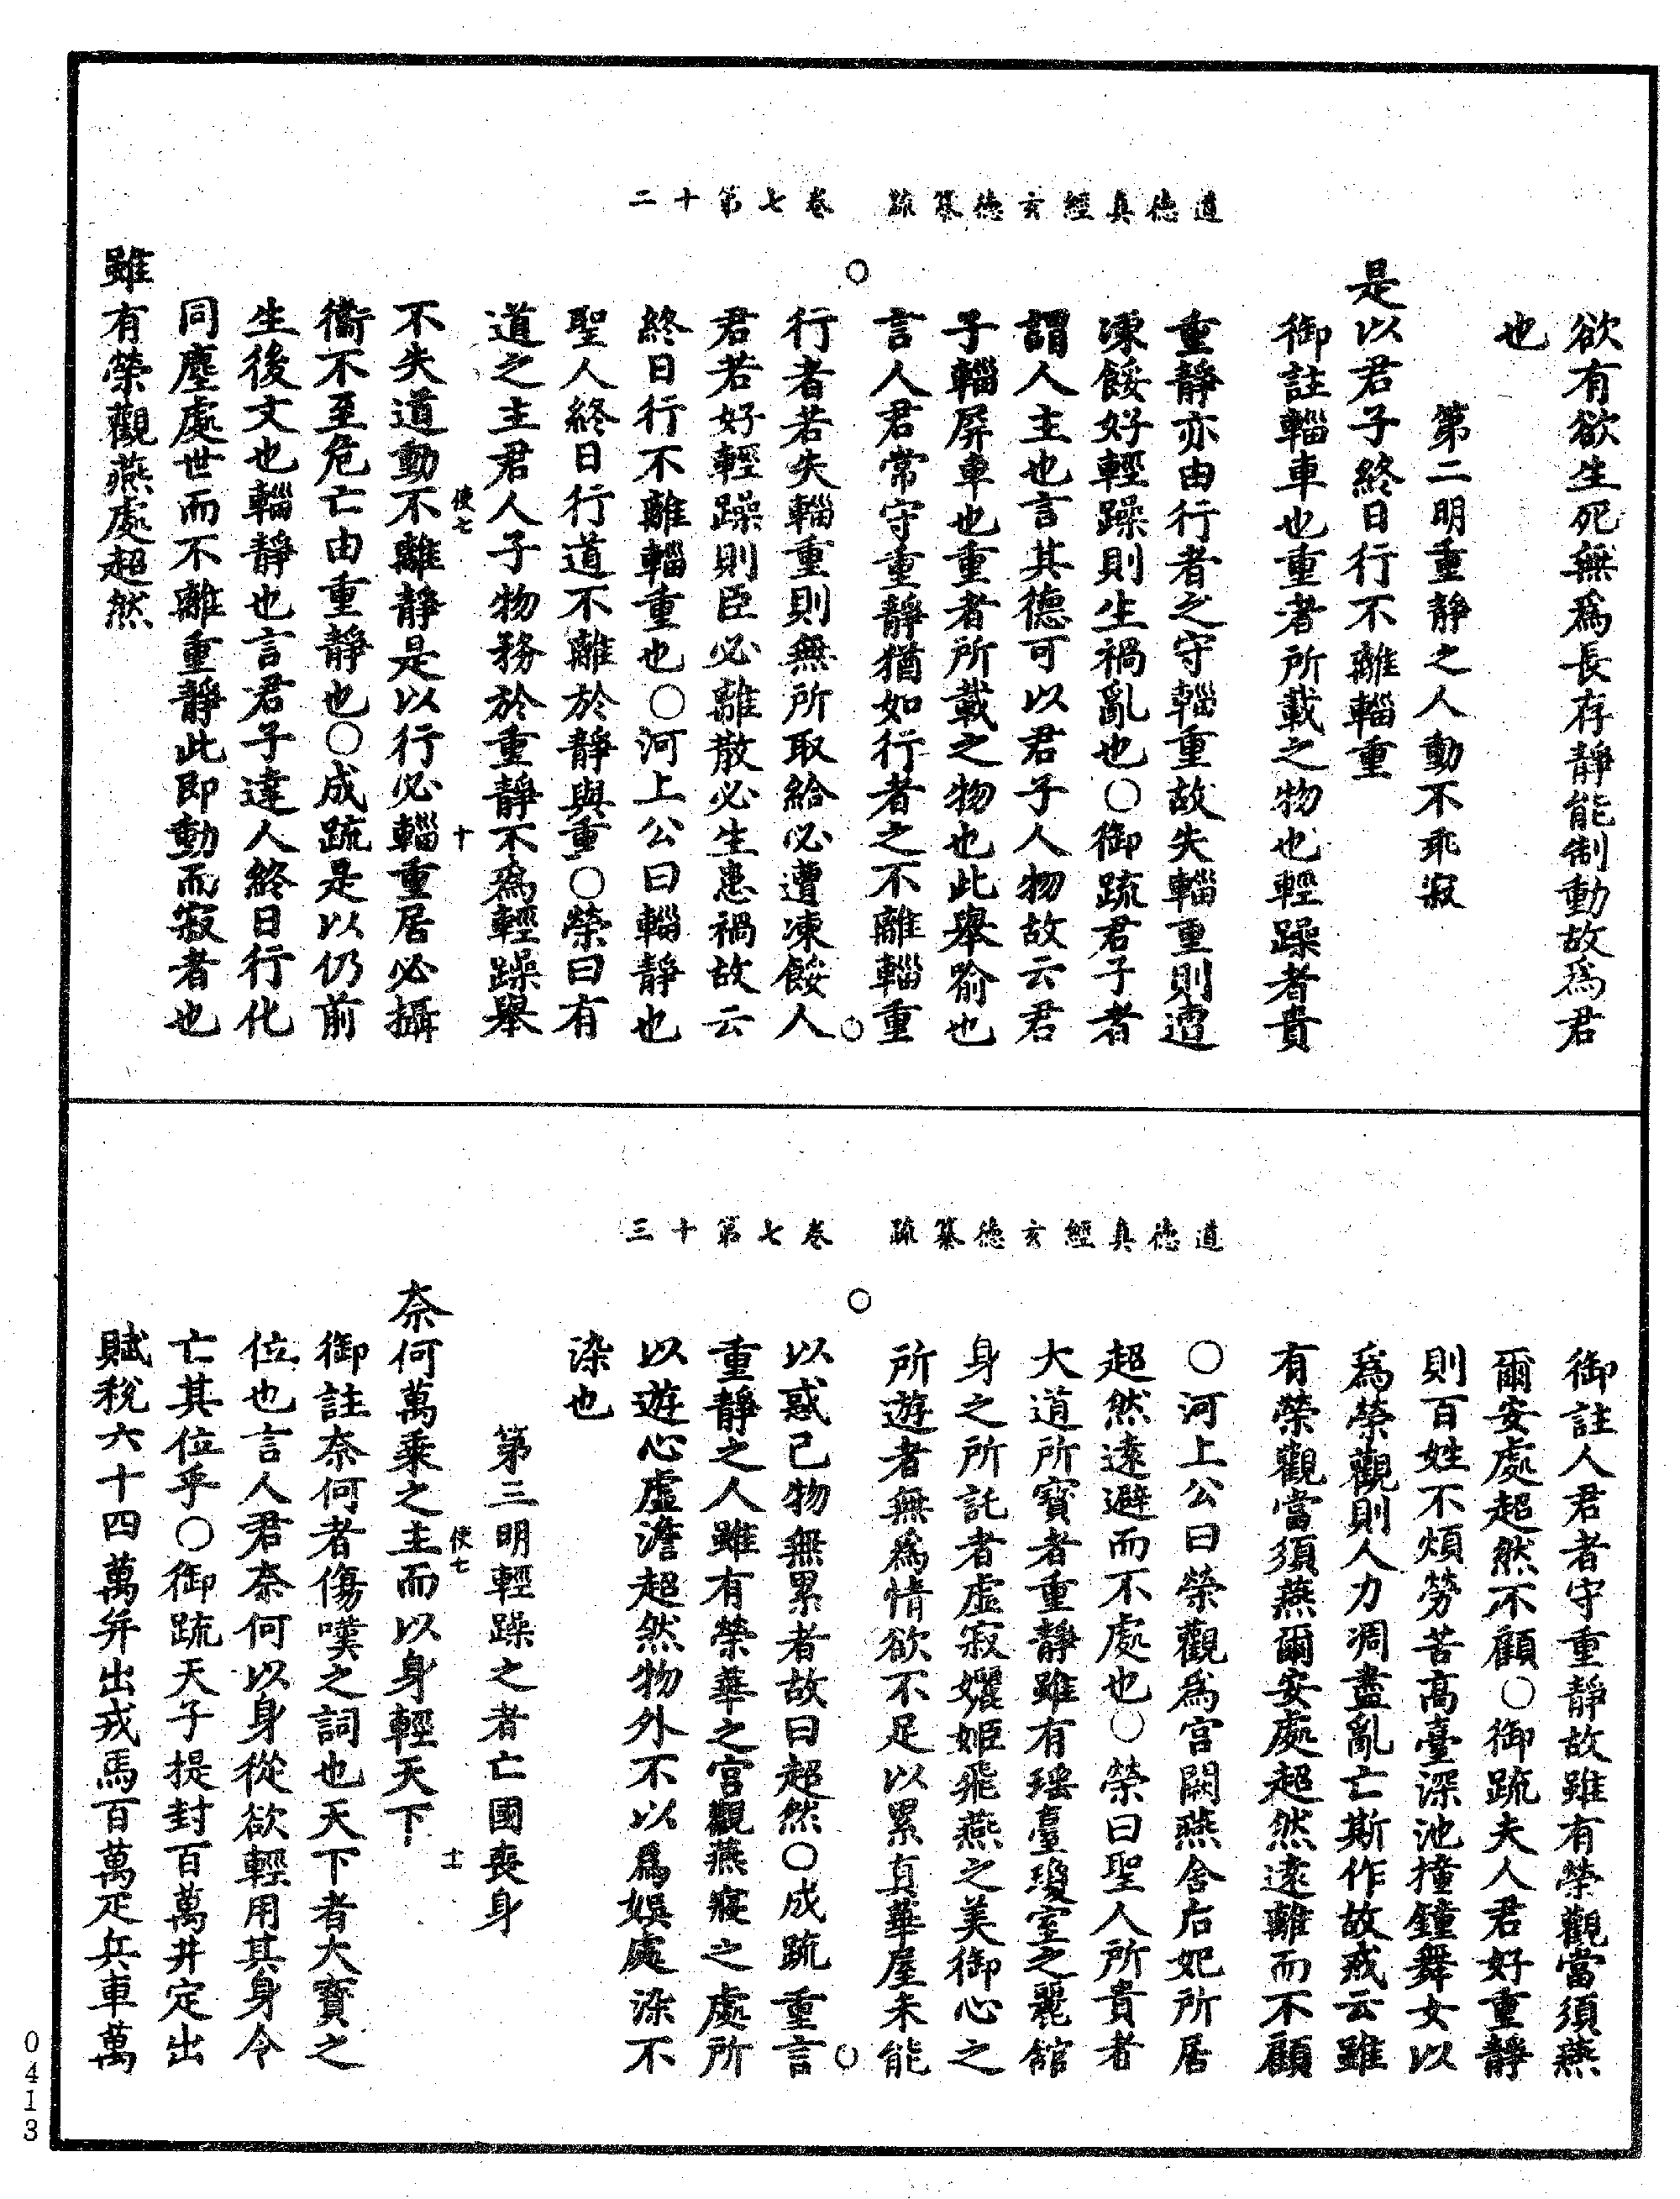 道德真經玄德纂疏　卷七第十二
欲有欲生死無爲長存靜能制動故爲君
也
第二明重靜之人動不乖寂
是以君子終日行不離輜重
御註輜車也重者所載之物也輕躁者貴
重靜亦由行者之守輜重故失輜重則遭
凍餒好輕躁則生禍亂也○御疏君子者
謂人主也言其德可以君子人物故云君
子輜屏車也重者所載之物也此舉喻也
言人君常守重靜猶如行者之不離輜重
行者若失輜重則無所取給必遭凍餒人
君若好輕躁則臣必離散必生患禍故云
終日行不離輜重也○河上公曰輜靜也
聖人終日行道不離於靜與重○榮曰有
道之主君人子物務於重靜不爲輕躁舉
使七　十
不失道動不離靜是以行必輜重居必攝
衞不至危亡由重靜也○成疏是以仍前
生後文也輜靜也言君子達人終日行化
同塵處世而不離重靜此即動而寂者也
雖有榮觀燕處超然
道德真經玄德纂疏　卷七第十三
御註人君者守重靜故雖有榮觀當須燕
爾安處超然不顧○御疏夫人君好重靜
則百姓不煩勞苦高臺深池撞鐘舞女以
爲榮觀則人力凋盡亂亡斯作故戒云雖
有榮觀當須燕爾安處超然遠離而不顧
○河上公曰榮觀爲宮闕燕舍后妃所居
超然遠避而不處也○榮曰聖人所貴者
大道所寶者重靜雖有瑶臺瓊室之麗館
身之所託者虛寂孋姬飛燕之美御心之
所遊者無爲情欲不足以累真華屋未能
以惑己物無累者故曰超然○成疏重言
重靜之人雖有榮華之宮觀燕寢之處所
以遊心虛澹超然物外不以爲娛處染不
染也
第三明輕躁之者亡國喪身
使七　十一
奈何萬乘之主而以身輕天下
御註奈何者傷嘆之詞也天下者大寶之
位也言人君奈何以身從欲輕用其身令
亡其位乎○御疏天子提封百萬井定出
賦稅六十四萬井出戎馬百萬疋兵車萬
0413